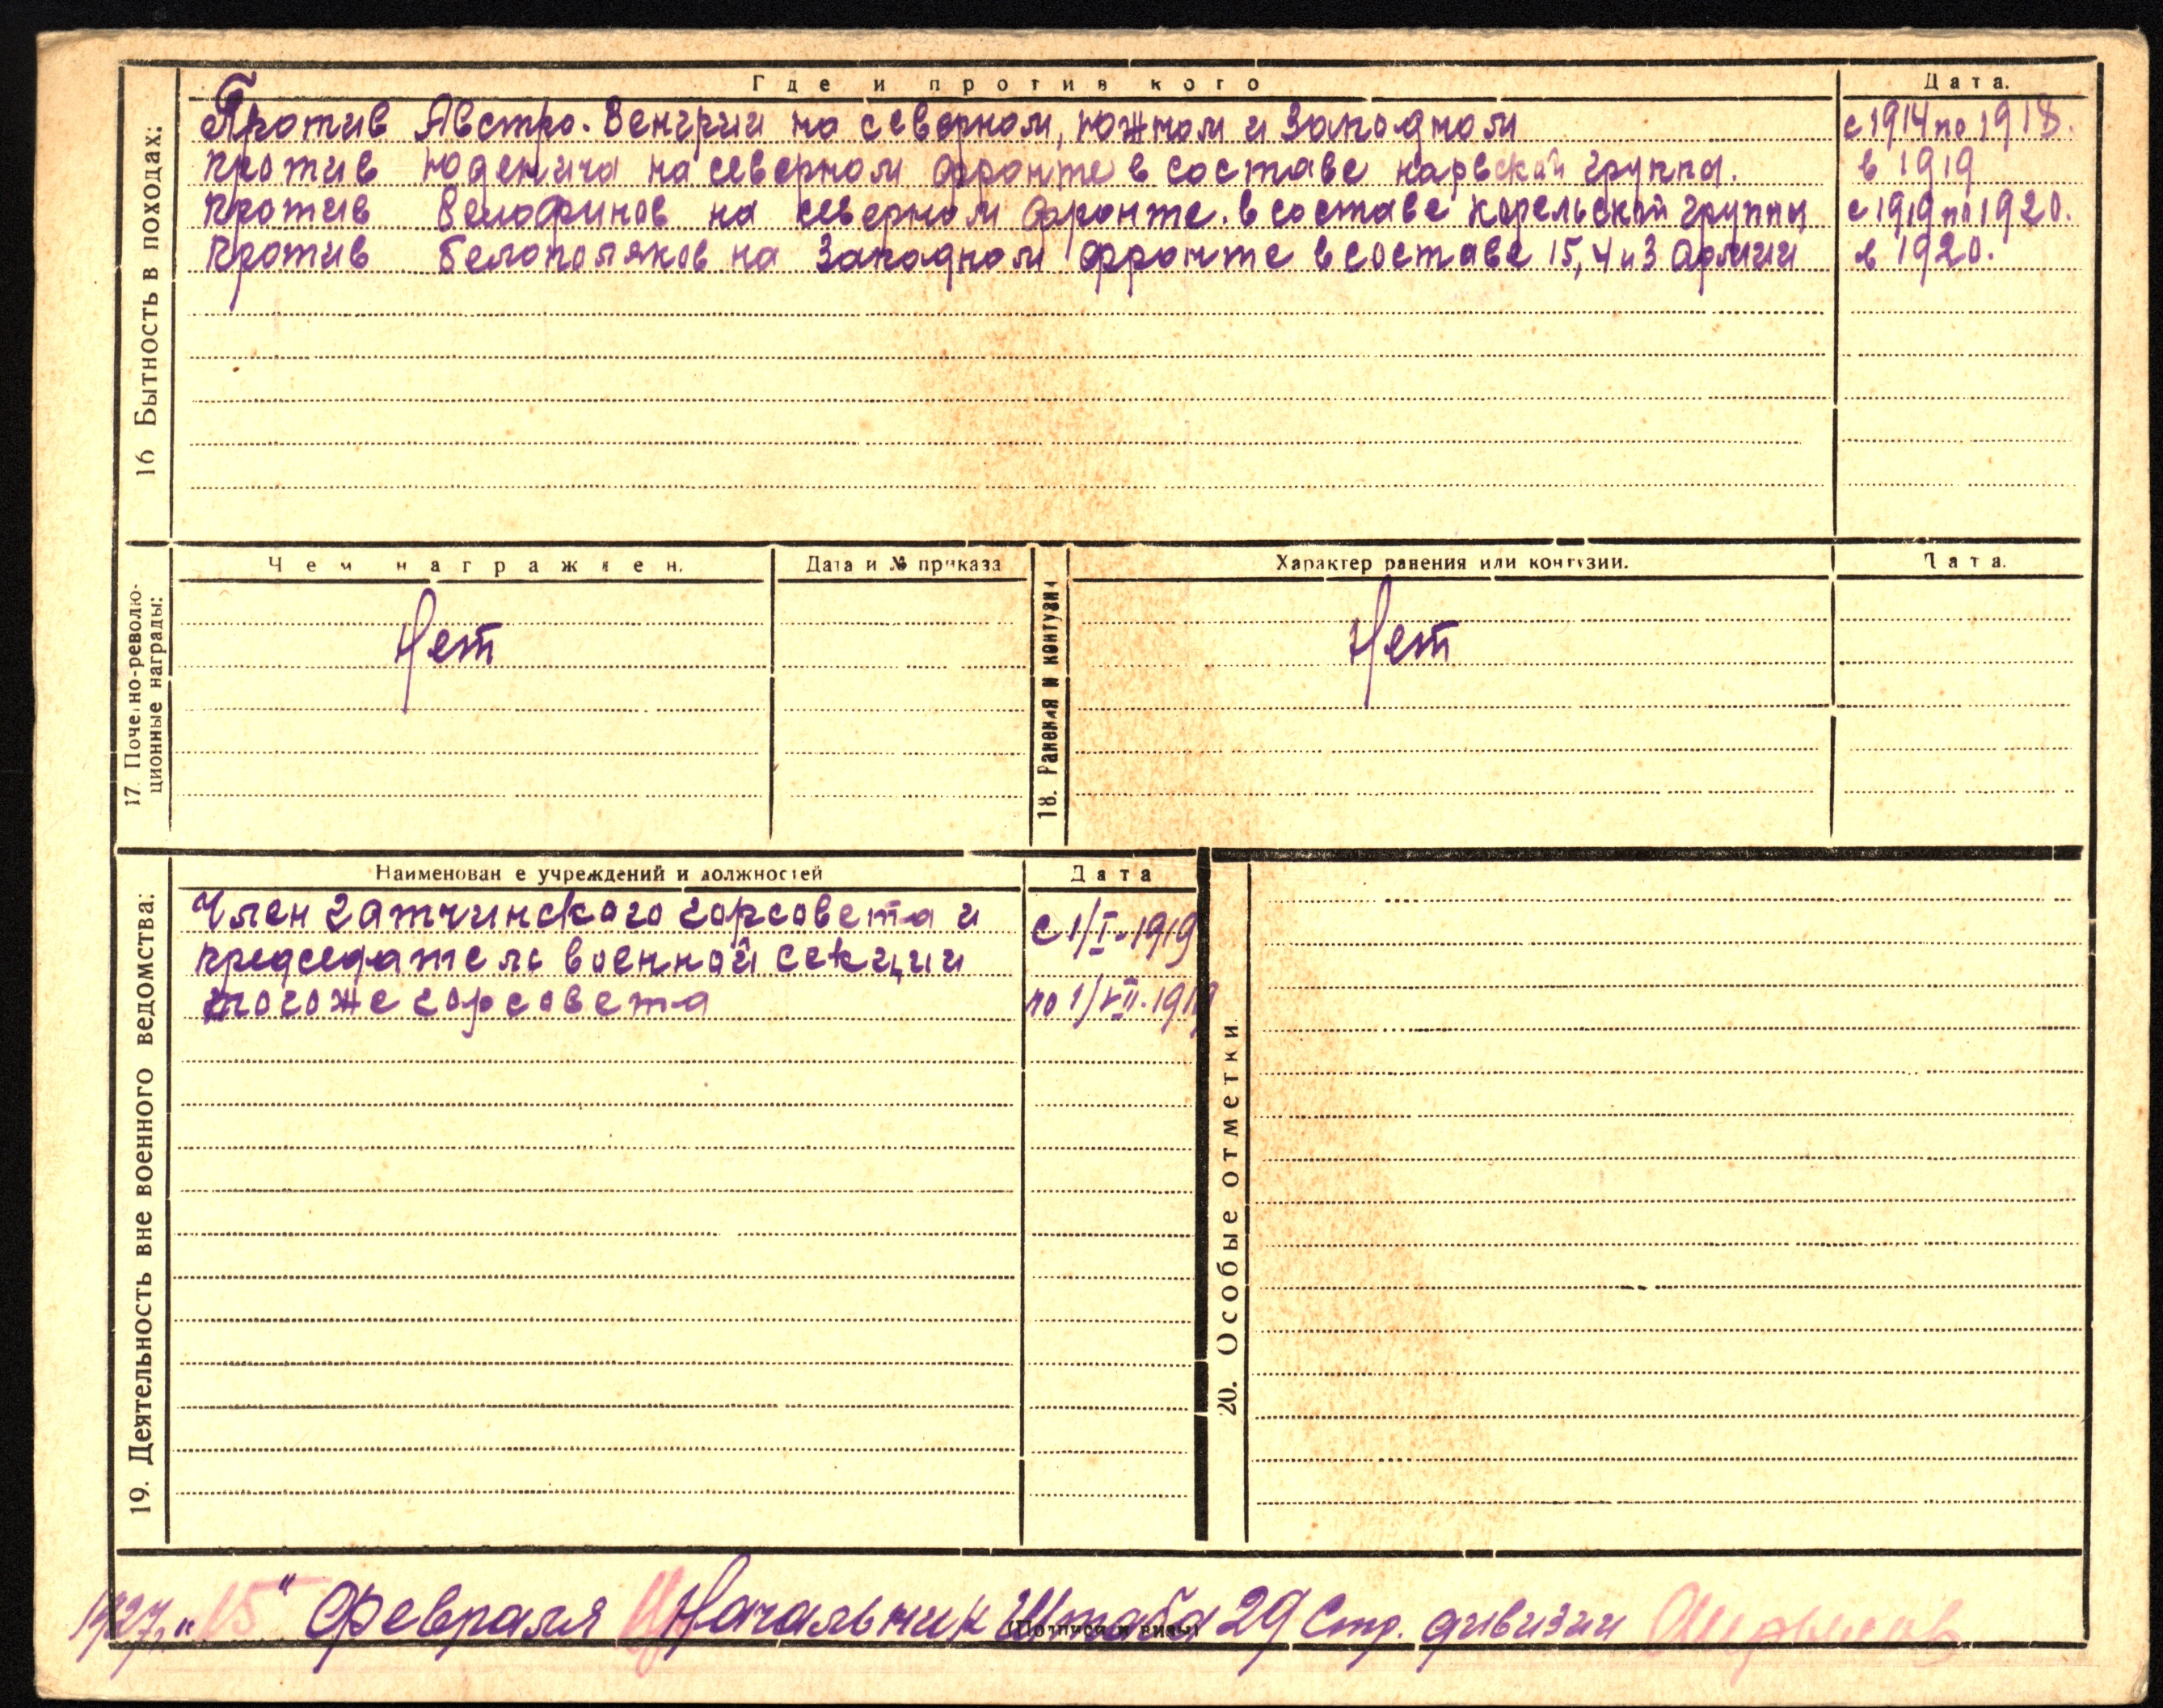 16 Бытность в походах:
Где и против кого
Дата.
Против Австро-Венгрии на северном, южном и Западном
с 1914 по 1918.
против Юденича на северном фронте в составе нарвской группы.
в 1919
против Белофинов на северном фронте. в составе карельской группы
с 1919 по 1920.
против белополяков на Западном фронте в составе 15, 4 и 3 Армии
в 1920.
17. Почетно-револю-
ционные награды:
Чем награжден.
Дата и № приказа
Нет
18. Ранения и контузии
Характер ранения или контузии.
Дата.
Нет
19. Деятельность вне военного ведомства:
Наименование учреждений и должностей
Дата
Член гатчинского горсовета и
с 1/I-1919
председатель военной секции
тогоже горсовета
по 1/VII-1919
20. Особые отметки
1927 „15“ Февраля Начальник Штаба 29 Стр. дивизии
(Подписи и визы)